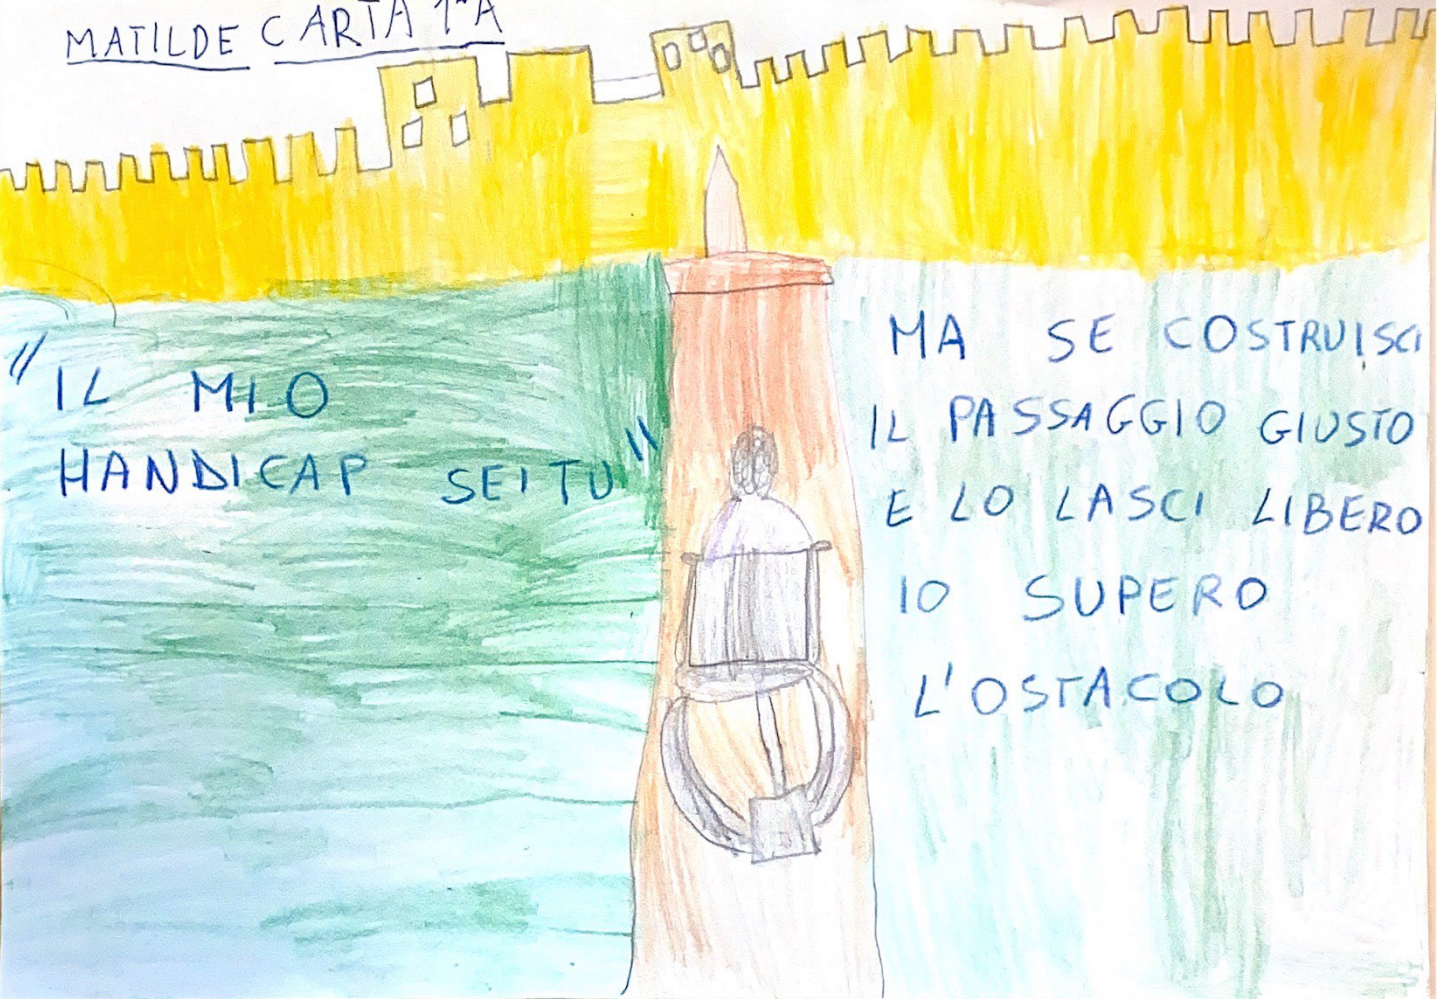 MATILDE CARTA 1ªA
"IL MIO
HANDICAP SEI TU"
MA SE COSTRUISCI
IL PASSAGGIO GIUSTO
E LO LASCI LIBERO
IO SUPERO
L'OSTACOLO